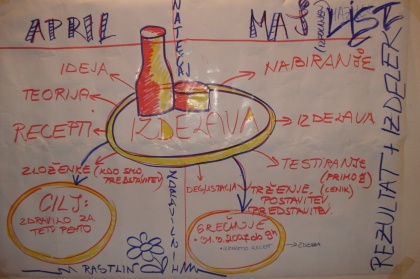 APRIL
MAJ
LIST
NATEČAJ
IDEJA
NABIRANJE
TEORIJA
RECEPTI
IZDELAVA
IZDELAVA
ZLOŽENKE (KDO SMO
PREDSTAVITEV
TESTIRANJE
DEGUSTACIJA
TRŽENJE, (CENIK)
POSTAVITEV,
PREDSTAVITEV
CILJ:
ZDRAVILO ZA
TETO PEHTO
SREČANJE
ZDRAVILNIH
RASTLIN
REZULTAT + IZDELEK